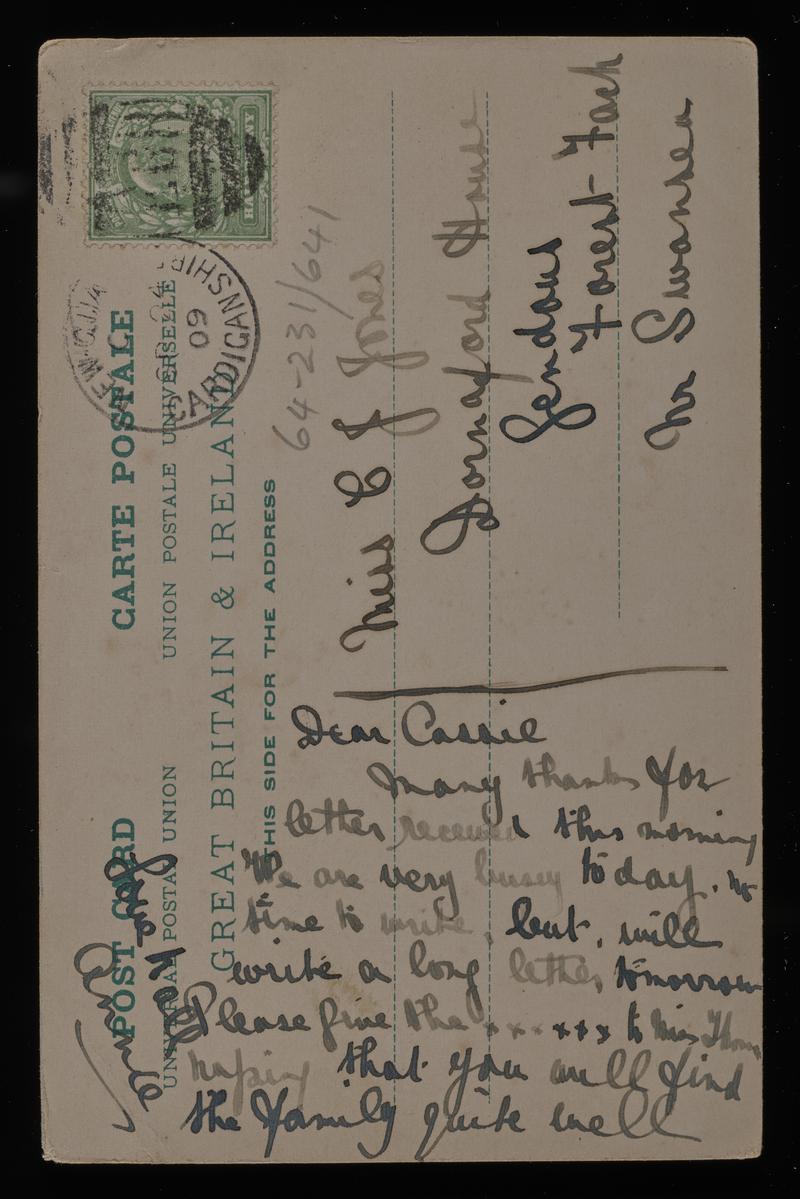 POST CARD CARTE POSTALE
UNIVERSAL POSTAL UNION UNION POSTALE UNIVERSELLE
GREAT BRITAIN & IRELAND
THIS SIDE FOR THE ADDRESS
HALFPENNY
CARDIGANSHIRE
24
09
64-231/641
Miss C J Jones
Dornaford House
Gendous
Forest Fach
Nr Swansea
Dear Cassie
Many thanks for
letter received this morning
We are very busy today. no
time to write, but, will
write a long letter tomorrow
Please give the x x x x x x to Miss Thomas
hoping that you will find
the family quite well
Annie